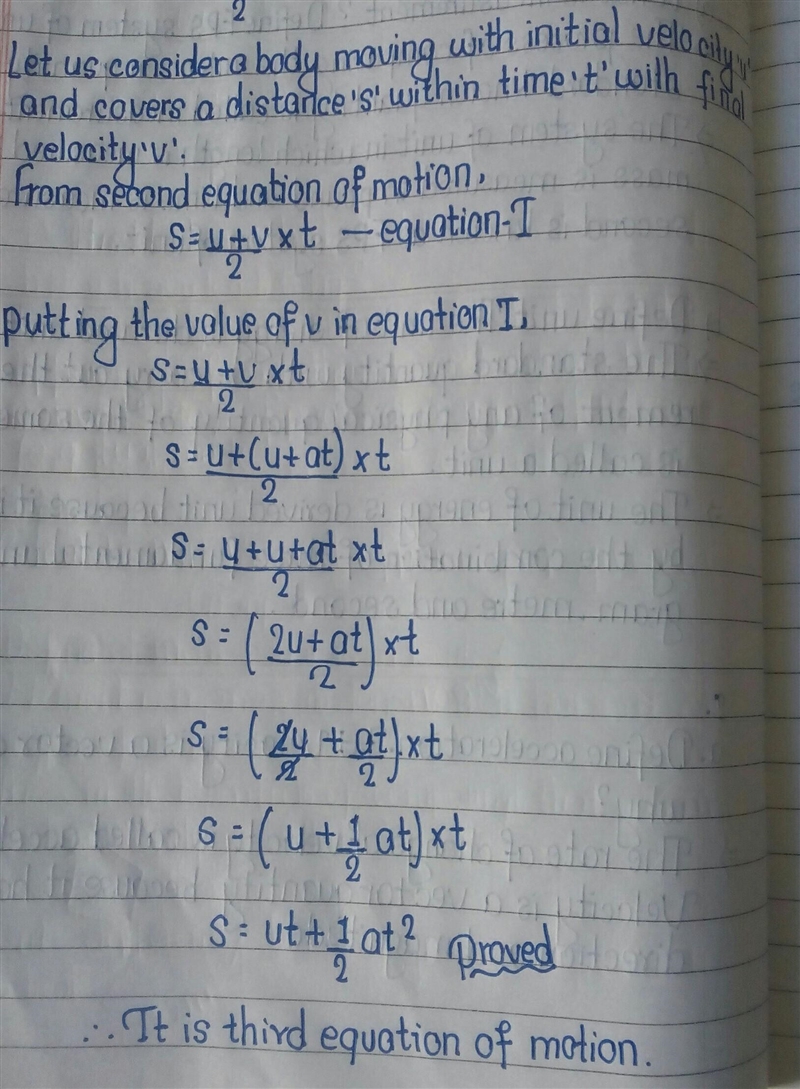 2
Let us consider a body moving with initial velocity 'u'
and covers a distance 's' within time 't' with final
velocity 'v'.
From second equation of motion,
S = u+v/2 x t — equation-I
putting the value of v in equation I,
S = u+v/2 x t
S = u+(u+at)/2 x t
S = u+u+at/2 x t
S = (2u+at/2) x t
S = (2u/2 + at/2) x t
S = (u + 1/2 at) x t
S = ut + 1/2 at² proved
∴ It is third equation of motion.